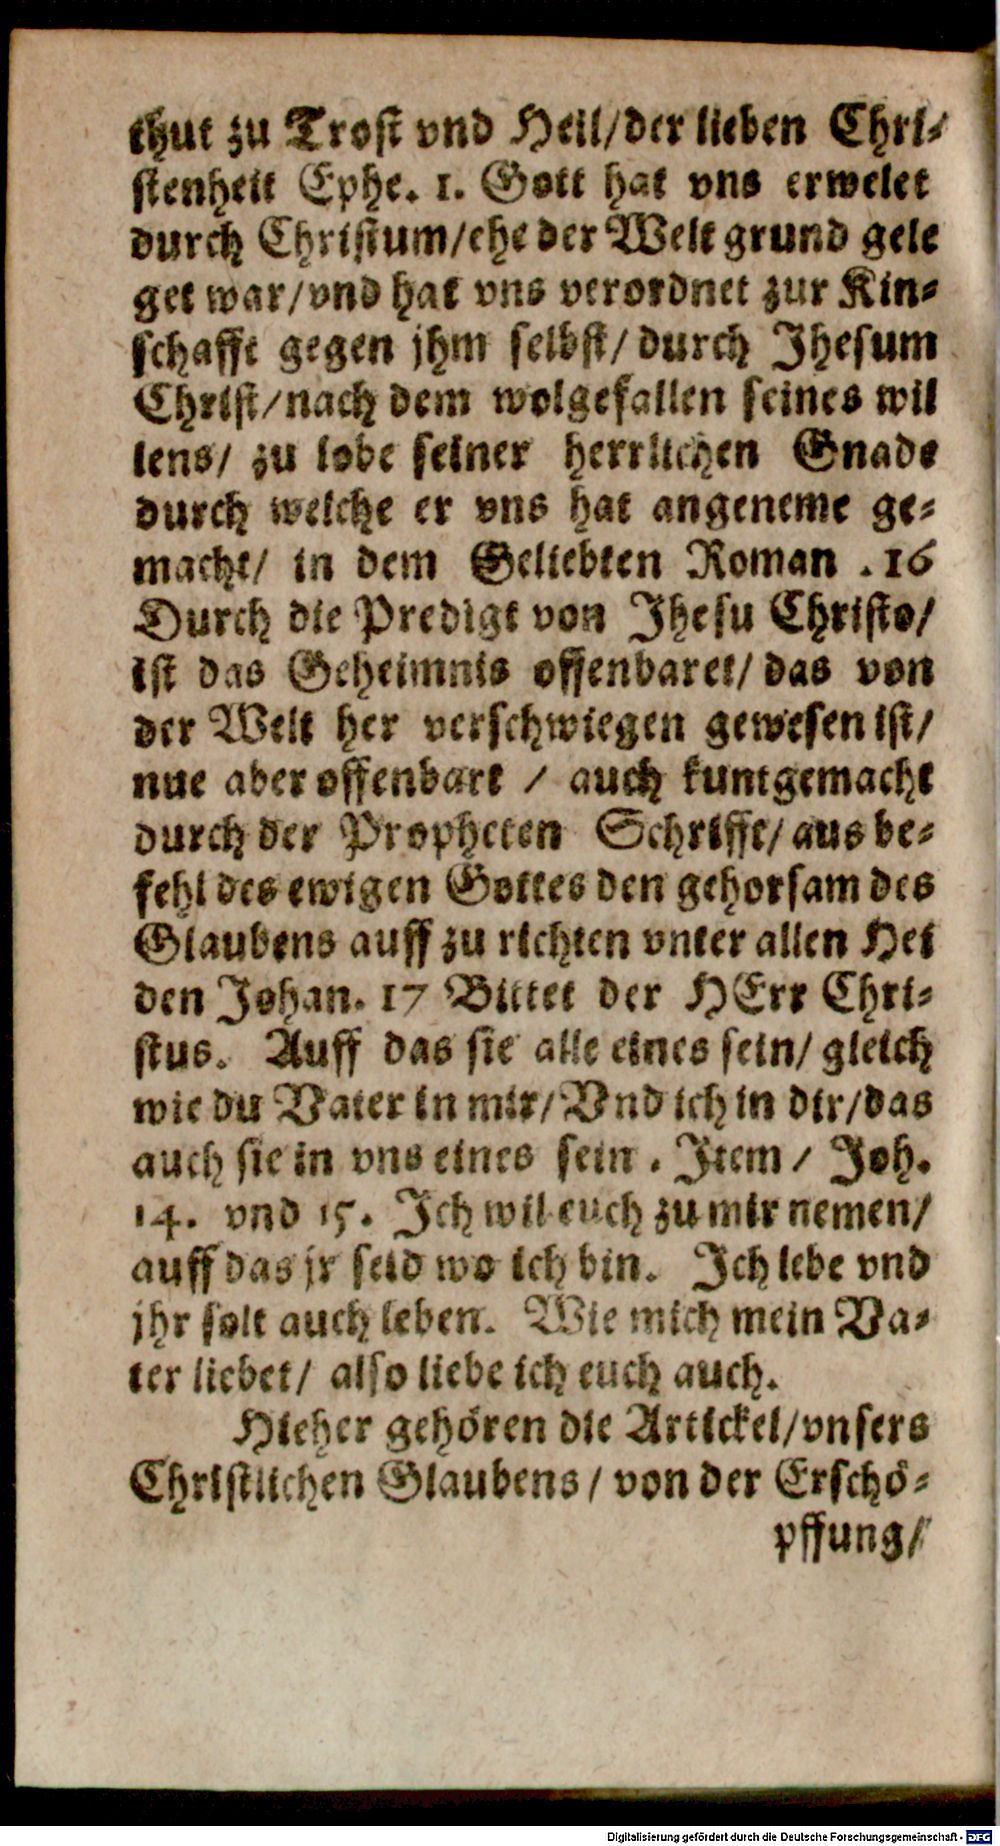 thut zu Trost vnd Heil/der lieben Chri-
stenheit Ephe. 1. Gott hat vns erwelet
durch Christum/ehe der Welt grund gele
get war/vnd hat vns verordnet zur Kin-
schafft gegen jhm selbst/ durch Jhesum
Christ/nach dem wolgefallen seines wil
lens/ zu lobe seiner herrlichen Gnade
durch welche er vns hat angeneme ge-
macht/ in dem Geliebten Roman .16
Durch die Predigt von Jhesu Christo/
ist das Geheimnis offenbaret/ das von
der Welt her verschwiegen gewesen ist/
nue aber offenbart / auch kuntgemacht
durch der Propheten Schrifft/ aus be-
fehl des ewigen Gottes den gehorsam des
Glaubens auff zu richten vnter allen Hei
den Johan. 17 Bittet der HErr Chri-
stus. Auff das sie alle eines sein/ gleich
wie du Vater in mir/Vnd ich in dir/das
auch sie in vns eines sein . Item / Joh.
14. vnd 15. Ich wil euch zu mir nemen/
auff das jr seid wo ich bin. Ich lebe vnd
jhr solt auch leben. Wie mich mein Va-
ter liebet/ also liebe ich euch auch.
Hieher gehören die Artickel/vnsers
Christlichen Glaubens/ von der Erschö-
pffung/
Digitalisierung gefördert durch die Deutsche Forschungsgemeinschaft - DFG